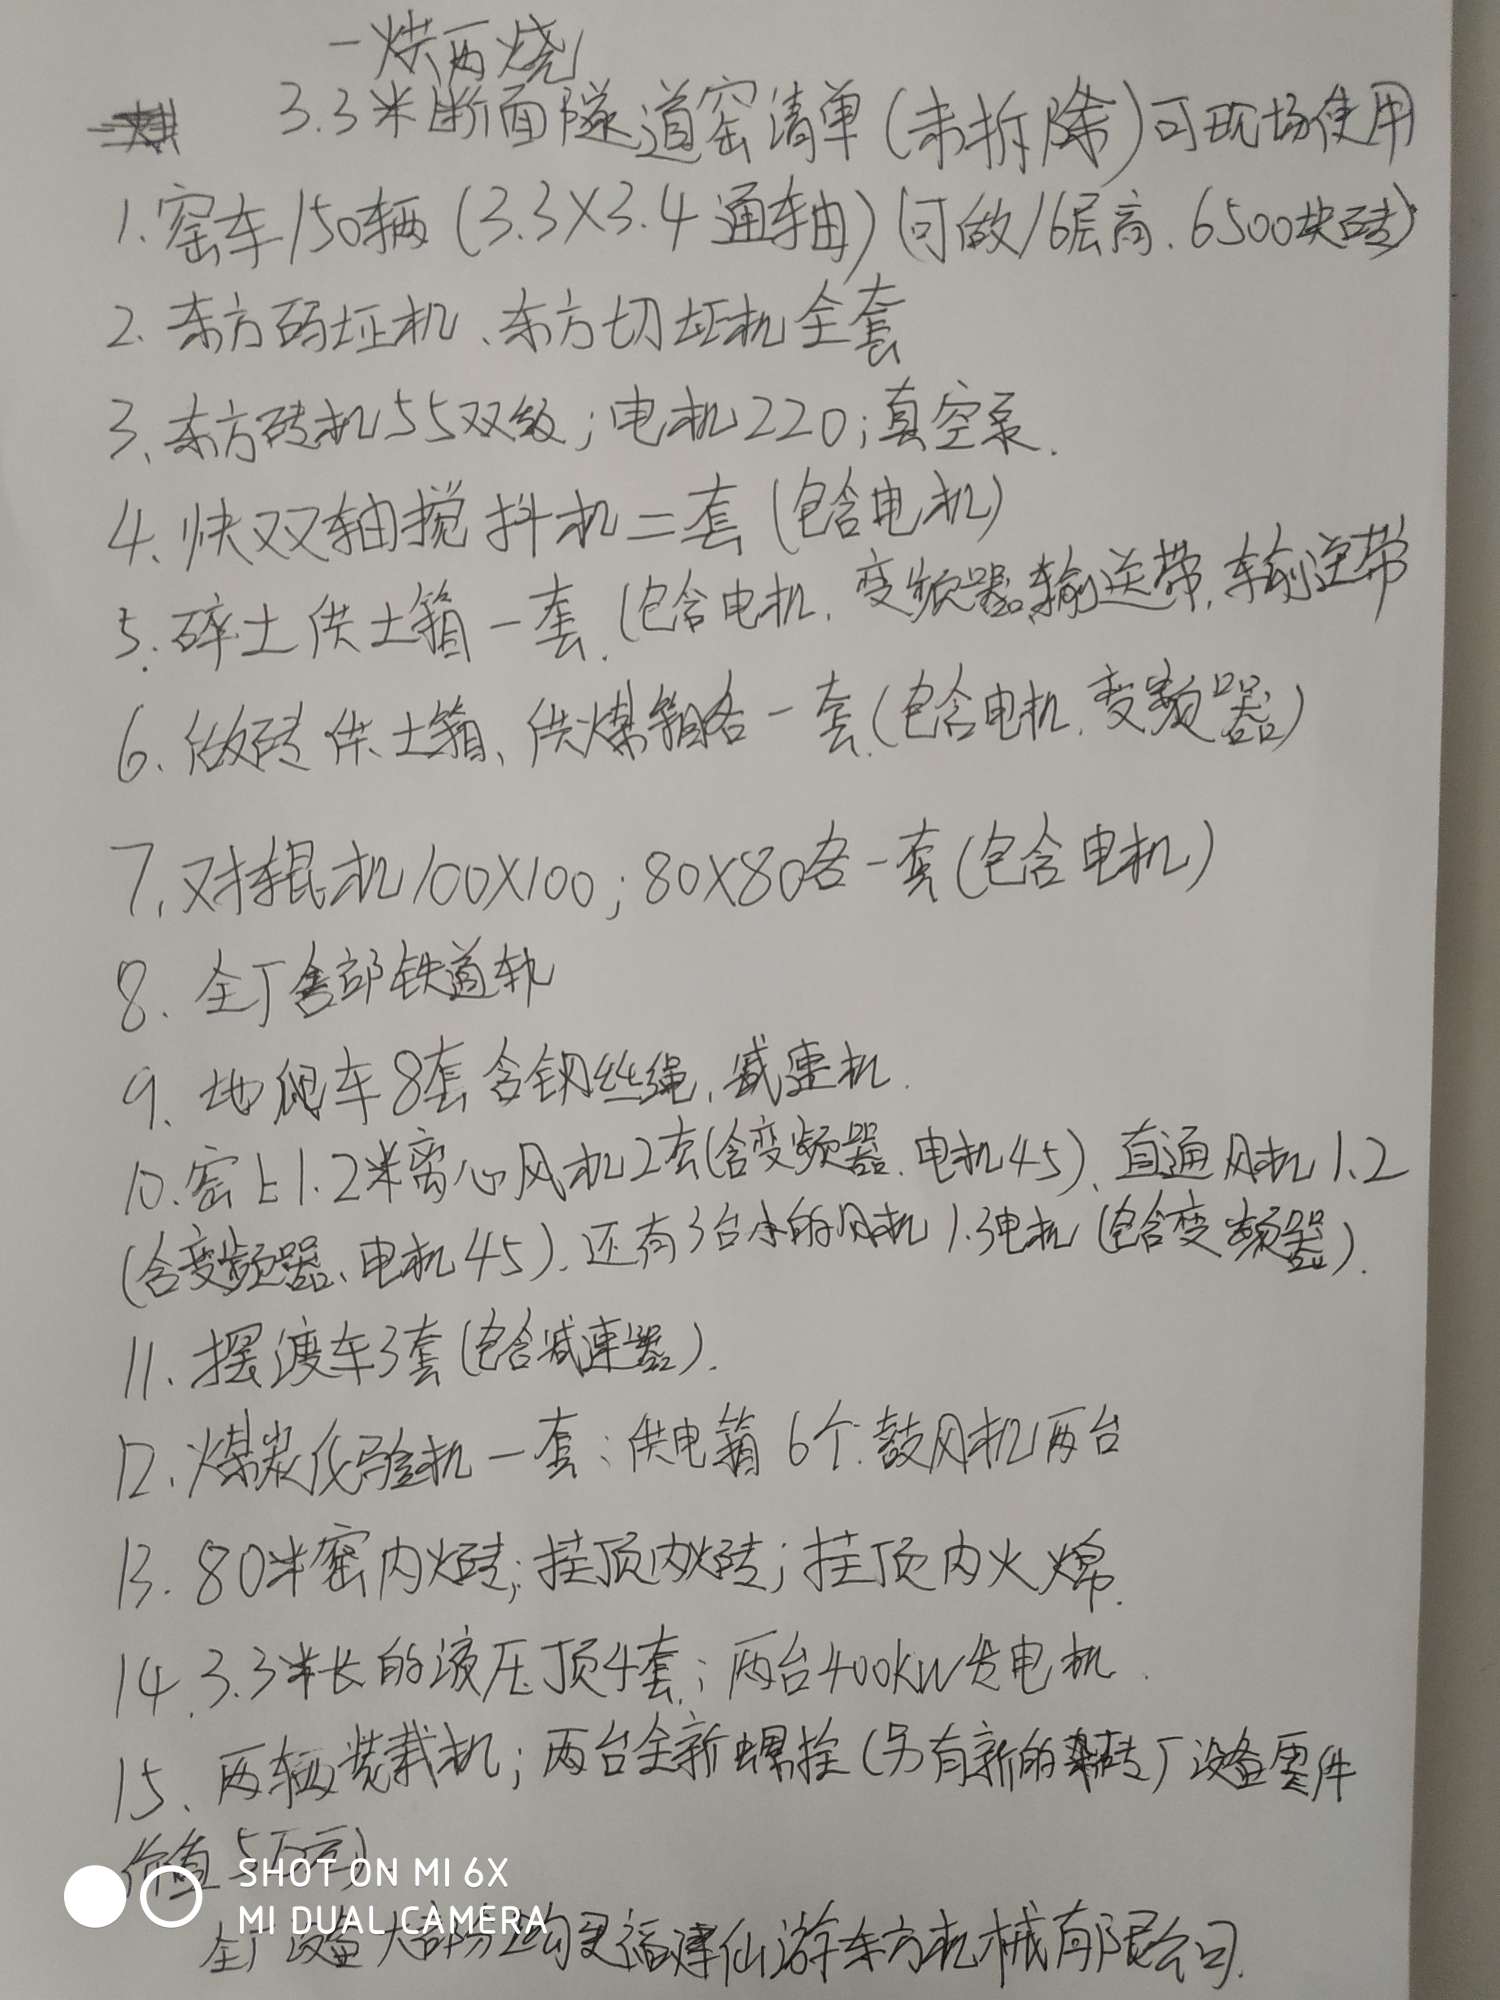 一烘两烧
3.3米断面隧道窑清单(未拆除)可现场使用
1.窑车150辆(3.3X3.4通轴)(可做16层高.6500块砖)
2.东方码坯机、东方切坯机全套
3、东方砖机55双级;电机220;真空泵.
4、快双轴搅抖机二套(包含电机)
5.碎土供土箱一套.(包含电机.变频器输送带,车输送带
6、做砖供土箱、供煤箱各一套.(包含电机.变频器)
7、对辊机100X100;80X80各一套(包含电机)
8.全厂全部铁道轨
9、地爬车8套含钢丝绳,减速机.
10.窑上1.2米离心风机2套(含变频器.电机45)、直通风机1.2
(含变频器、电机45).还有3台小的风机1.3电机(包含变频器).
11、摆渡车3套(包含减速器).
12、煤炭化验机一套;供电箱6个.鼓风机两台
13.80米窑内火砖;挂顶内火砖;挂顶内火棉.
14.3.3米长的液压顶4套;两台400KW发电机.
15、两辆装载机;两台全新螺拴(另有新的砖厂设备零件
价值5万元).
全厂设备大部分均是福建仙游东方机械有限公司.
SHOT ON MI 6X
MI DUAL CAMERA